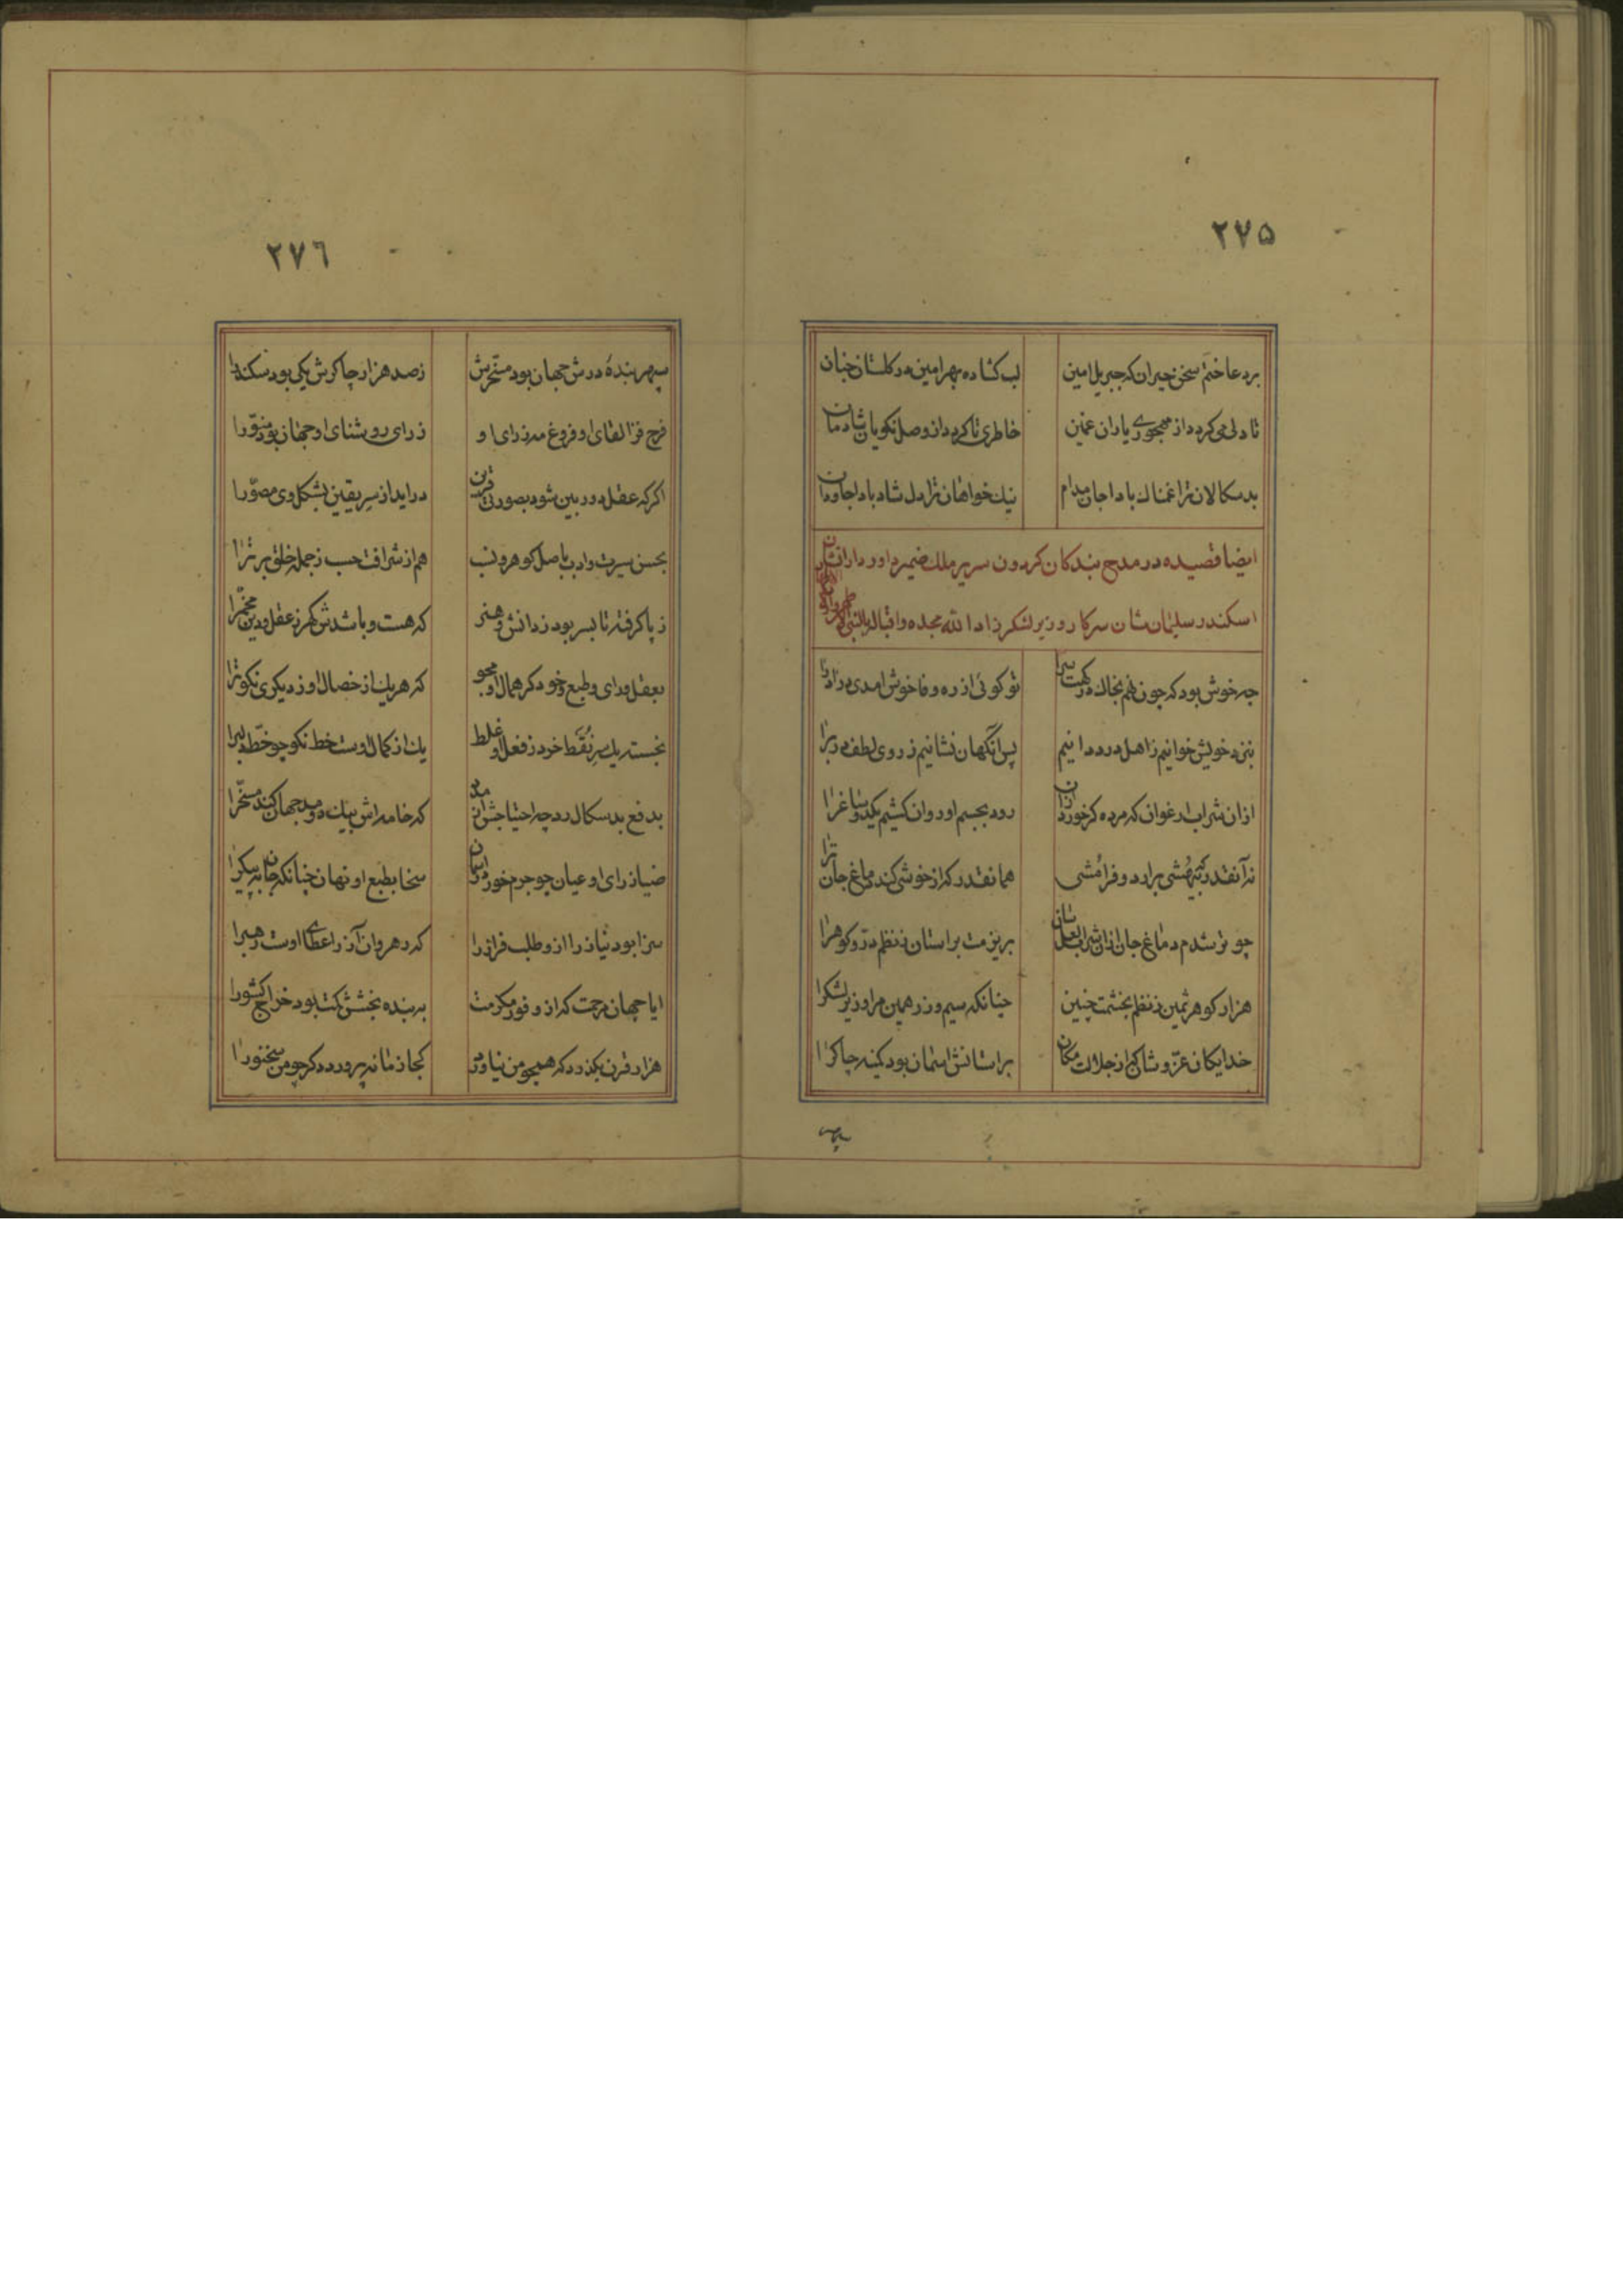 ٢٧۵
بر دعا ختم سخن خیران که جبریل امین لب کشاده بهر امین در کلستان جنان
تا دلی می کردد از مهجوری یاران غمین خاطری تا کردد از وصل نکویان شادمان
بدسکالان ترا غمناک بادا جان مدام نیك خواهان ترا دل شاد بادا جاودان
ایضا قصیده در مدح بندکان کردون سریر ملك ضمیر داور دارانشان
اسکندر سلیمان شان سرکار وزیر لشکر زاد الله مجده و اقباله بالنبی
چه خوش بود که چون نهم بخاك درکهت سرا تو کوئی از ره وفا خوش امدی درا درا
بنزد خویش خوانیم ز اهل درد دانیم پس آنگهان نشانیم ز روی لطف در برا
ازان شراب ارغوان که مرده کر خورد ازان رود بجسم او روان کشیم یکدو ساغرا
نه آنقدر که بیهشی برارد و فرامشی همانقدر که از خوشی کند دماغ جان ترا
چو تر شدم دماغ جان ازان شراب لعل سان بریزمت براستان ز نظم در و کوهرا
هزار کوهر ثمین ز نظم بخشمت چنین چنانکه سیم و زر همین مرا وزیر لشکرا
خدایکان عز و شان کز جلالت مکان براستانش اسمان بود کمینه چاکرا
سپهر
٢٧٦
سپهر بندۀ درش جهان بود مسخرش ز صد هزار چاکرش یکی بود سکندرا
فرح فزا لقای او فروغ مه ز رای او ز رای روشنای او جهان بود منورا
اکر که عقل دوربین شود بصورتی قرین دراید از سر یقین بشکل وی مصورا
بحسن سیرت و ادب باصل کوهر و نسب هم از شرافت حسب ز جمله خلق برترا
ز پا کرفته تا بسر بود ز دانش و هنر که هست و باشدش کهر ز عقل و دین مخمرا
بعقل و رای و طبع و خو دکر همال او مجو که هریك از خصال او ز دیکری نکوترا
نجسته یك سر نقط خرد ز فعل او غلط یك از کمال اوست خط نکو چو خط دلبرا
بدفع بدسکال رد چه احتیاجش از مدد که خامه اش بیك دو مد جهان کند مسخرا
ضیا ز رای او عیان چو جرم خور در اسمان سخا بطبع او نهان چنانکه جان به پیکرا
سزا بود نیاز را ازو طلب فراز را که رهروان آز را عطای اوست رهبرا
ایا جهان مرحمت که از وفور مکرمت به بنده بخشش کمت بود خراج کشورا
هزار قرن بکذرد که همچو من نیاورد کجا زمانه پرورد دکر چو من سخنورا